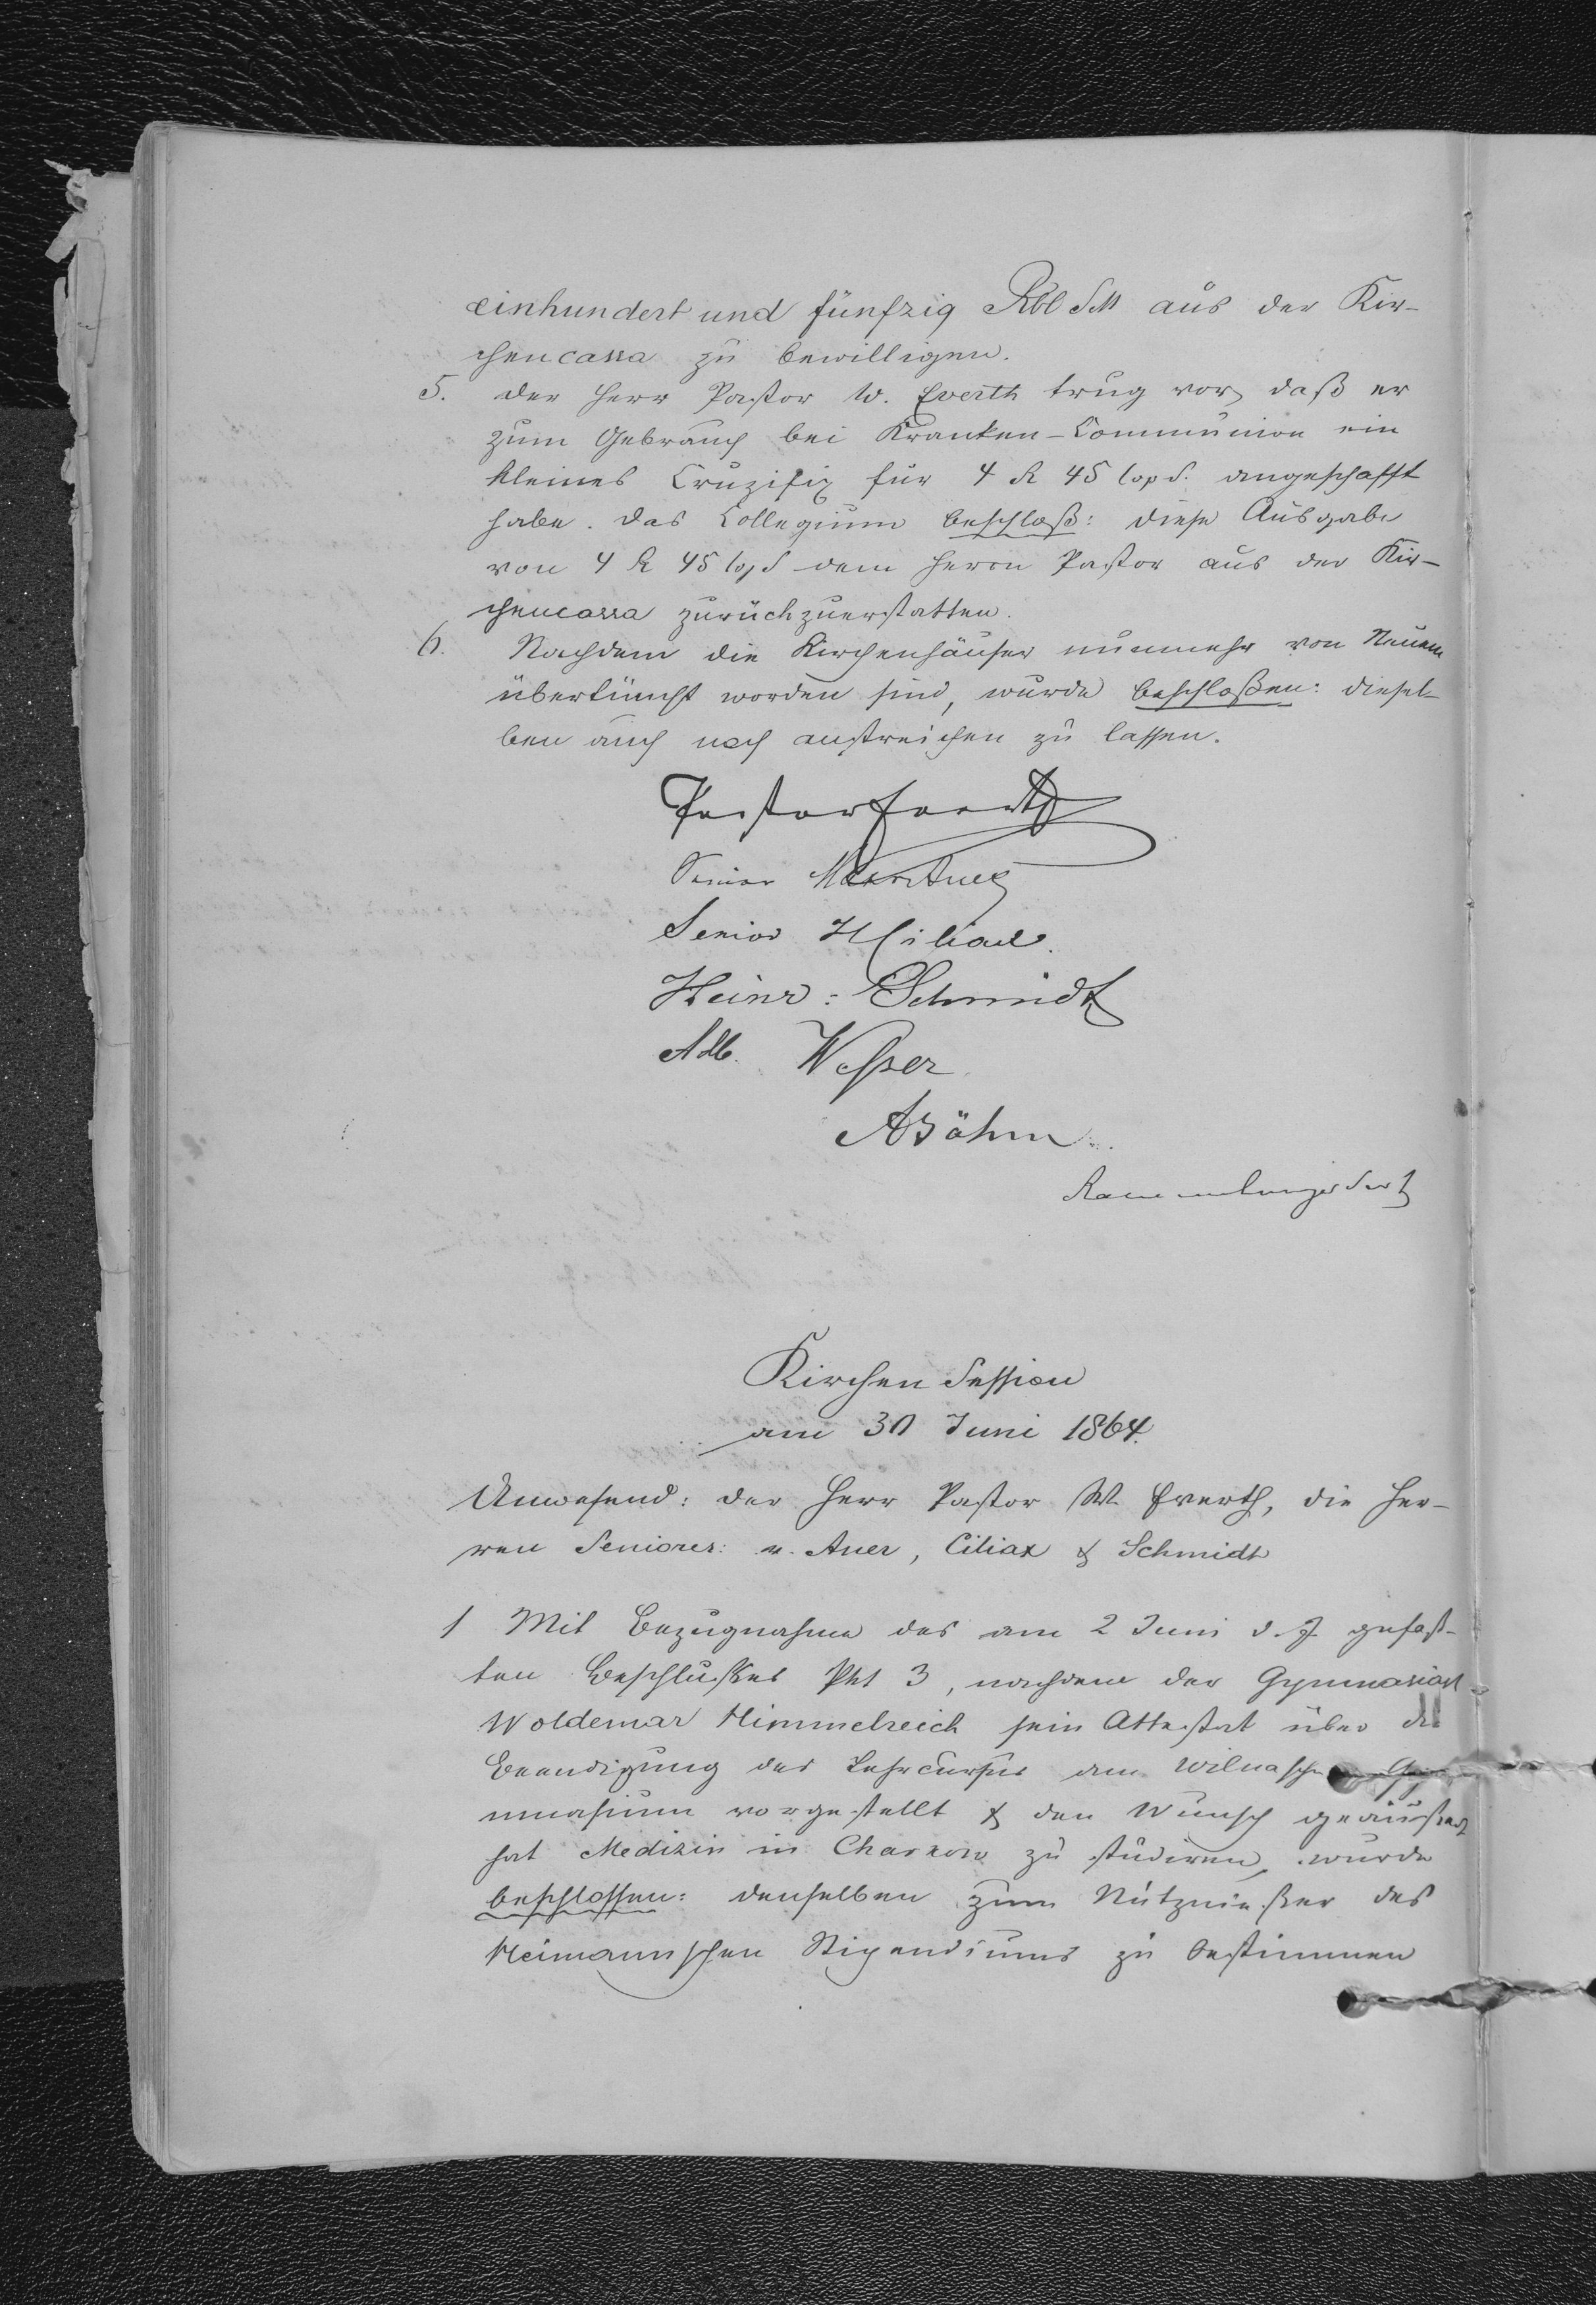 einhundert und fünfzig Rbl SM aus der Kir-
chencassa zu bewilligen.
5. der Herr Pastor W. Everth trug vor, daß er
zum Gebrauch bei Kranken-Communion ein
kleines Cruzifix für 4 R 45 Cop S. angeschafft
habe. das Collegium beschloß: diese Ausgabe
von 4 R 45 Cop S dem Herrn Pastor aus der Kir-
chencassa zurückzuerstatten.
6. Nachdem die Kirchenhäuser nunmehr von Neuem
übertüncht worden sind, wurde beschloßen: diesel-
ben auch noch anstreichen zu lassen.
Pastor Everth
Senior
Senior Ciliax
Heinr: Schmidt
Adb.
ABöhm
Kirchen Session
am 30 Juni 1864.
Anwesend: der Herr Pastor W. Everth, die Her-
ren Seniores: v. Auer, Ciliax & Schmidt
1 Mit Bezugnahme des am 2 Juni d. J. gefaß-
ten Beschlußes Pkt 3, nachdem der Gymnasiast
Woldemar Himmelreich sein Attestat über die
Beendigung des Lehrcursus am Wilnaschen Gy-
mnasium vorgestellt & den Wunsch geäußert
hat Medizin in Charkow zu studiren, wurde
beschlossen: denselben zum Nutznießer des
Heimannschen Stipendiums zu bestimmen